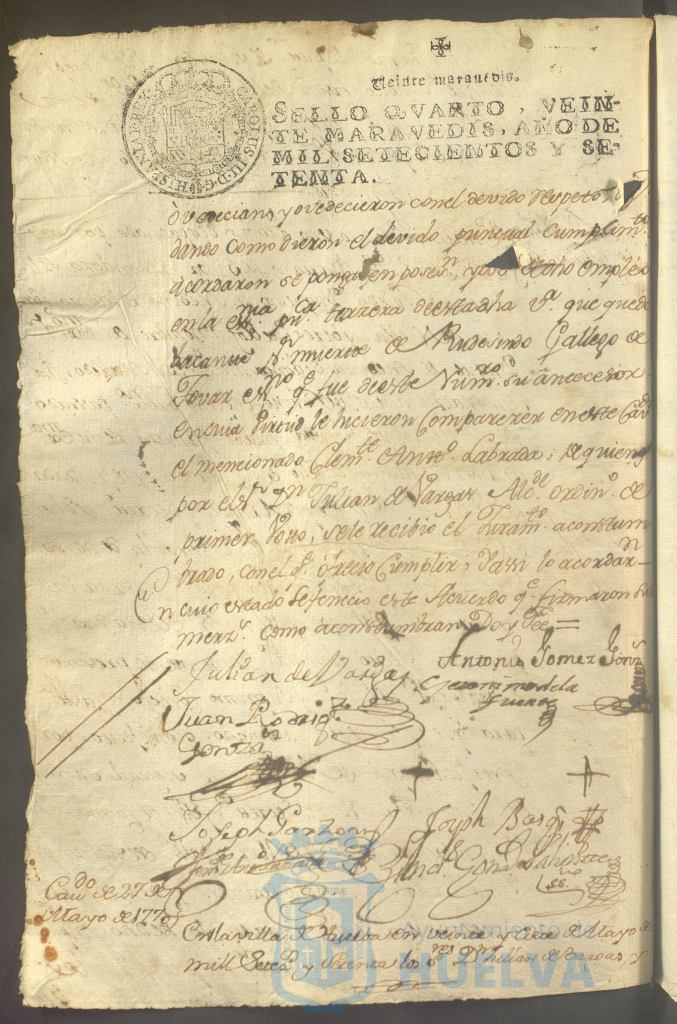 Veinte maravedis.
SELLO QVARTO, VEIN-
TE MARAVEDIS, AÑO DE
MIL SETECIENTOS Y SE-
TENTA.
CAROLUS III D G HISPANIAR REX
ovedecian, y ovedecieron con el devido Respeto y
dando como dieron el devido puntual Cumplim.to
acordaron se ponga en poses.n, y uso de dho empleo
en la es.nia pu.ca tercera de esta dha v.a que quedo
bacante p.r muerte de Rudesindo Gallego de
Tovar es.no q.e fue de este Num.ro su antecesor
en cuia virtud le hicieron Comparezer en este Cav.do
el mencionado Clem.te Ant.o Labrada; de quien
por el S.r D.n Julian de Vargas Alc.de ordin.o de
primer Voto, se le recibio el Juram.to acostum
brado, con el q.e ofrecio Cumplir; y assi lo acordar.n
En cuio estado se fenecio este Acuerdo q.e firmaron su
merz.s como acostumbran Doy Fee =
Julian de Vargas
Antonio Gomez
Geronimo de la
Fuente
Juan Rodrig.z
Gonza
Joseph Garzon
Joseph Bas
Clem.te Ant.o Labrada
Cav.do de 27 de
Mayo de 1770
En la villa de Huelva en veinte y siete de Mayo de
mill Setez.s y Setenta los S.res D.n Julian de Vargas, y
Ayuntamiento de
HUELVA